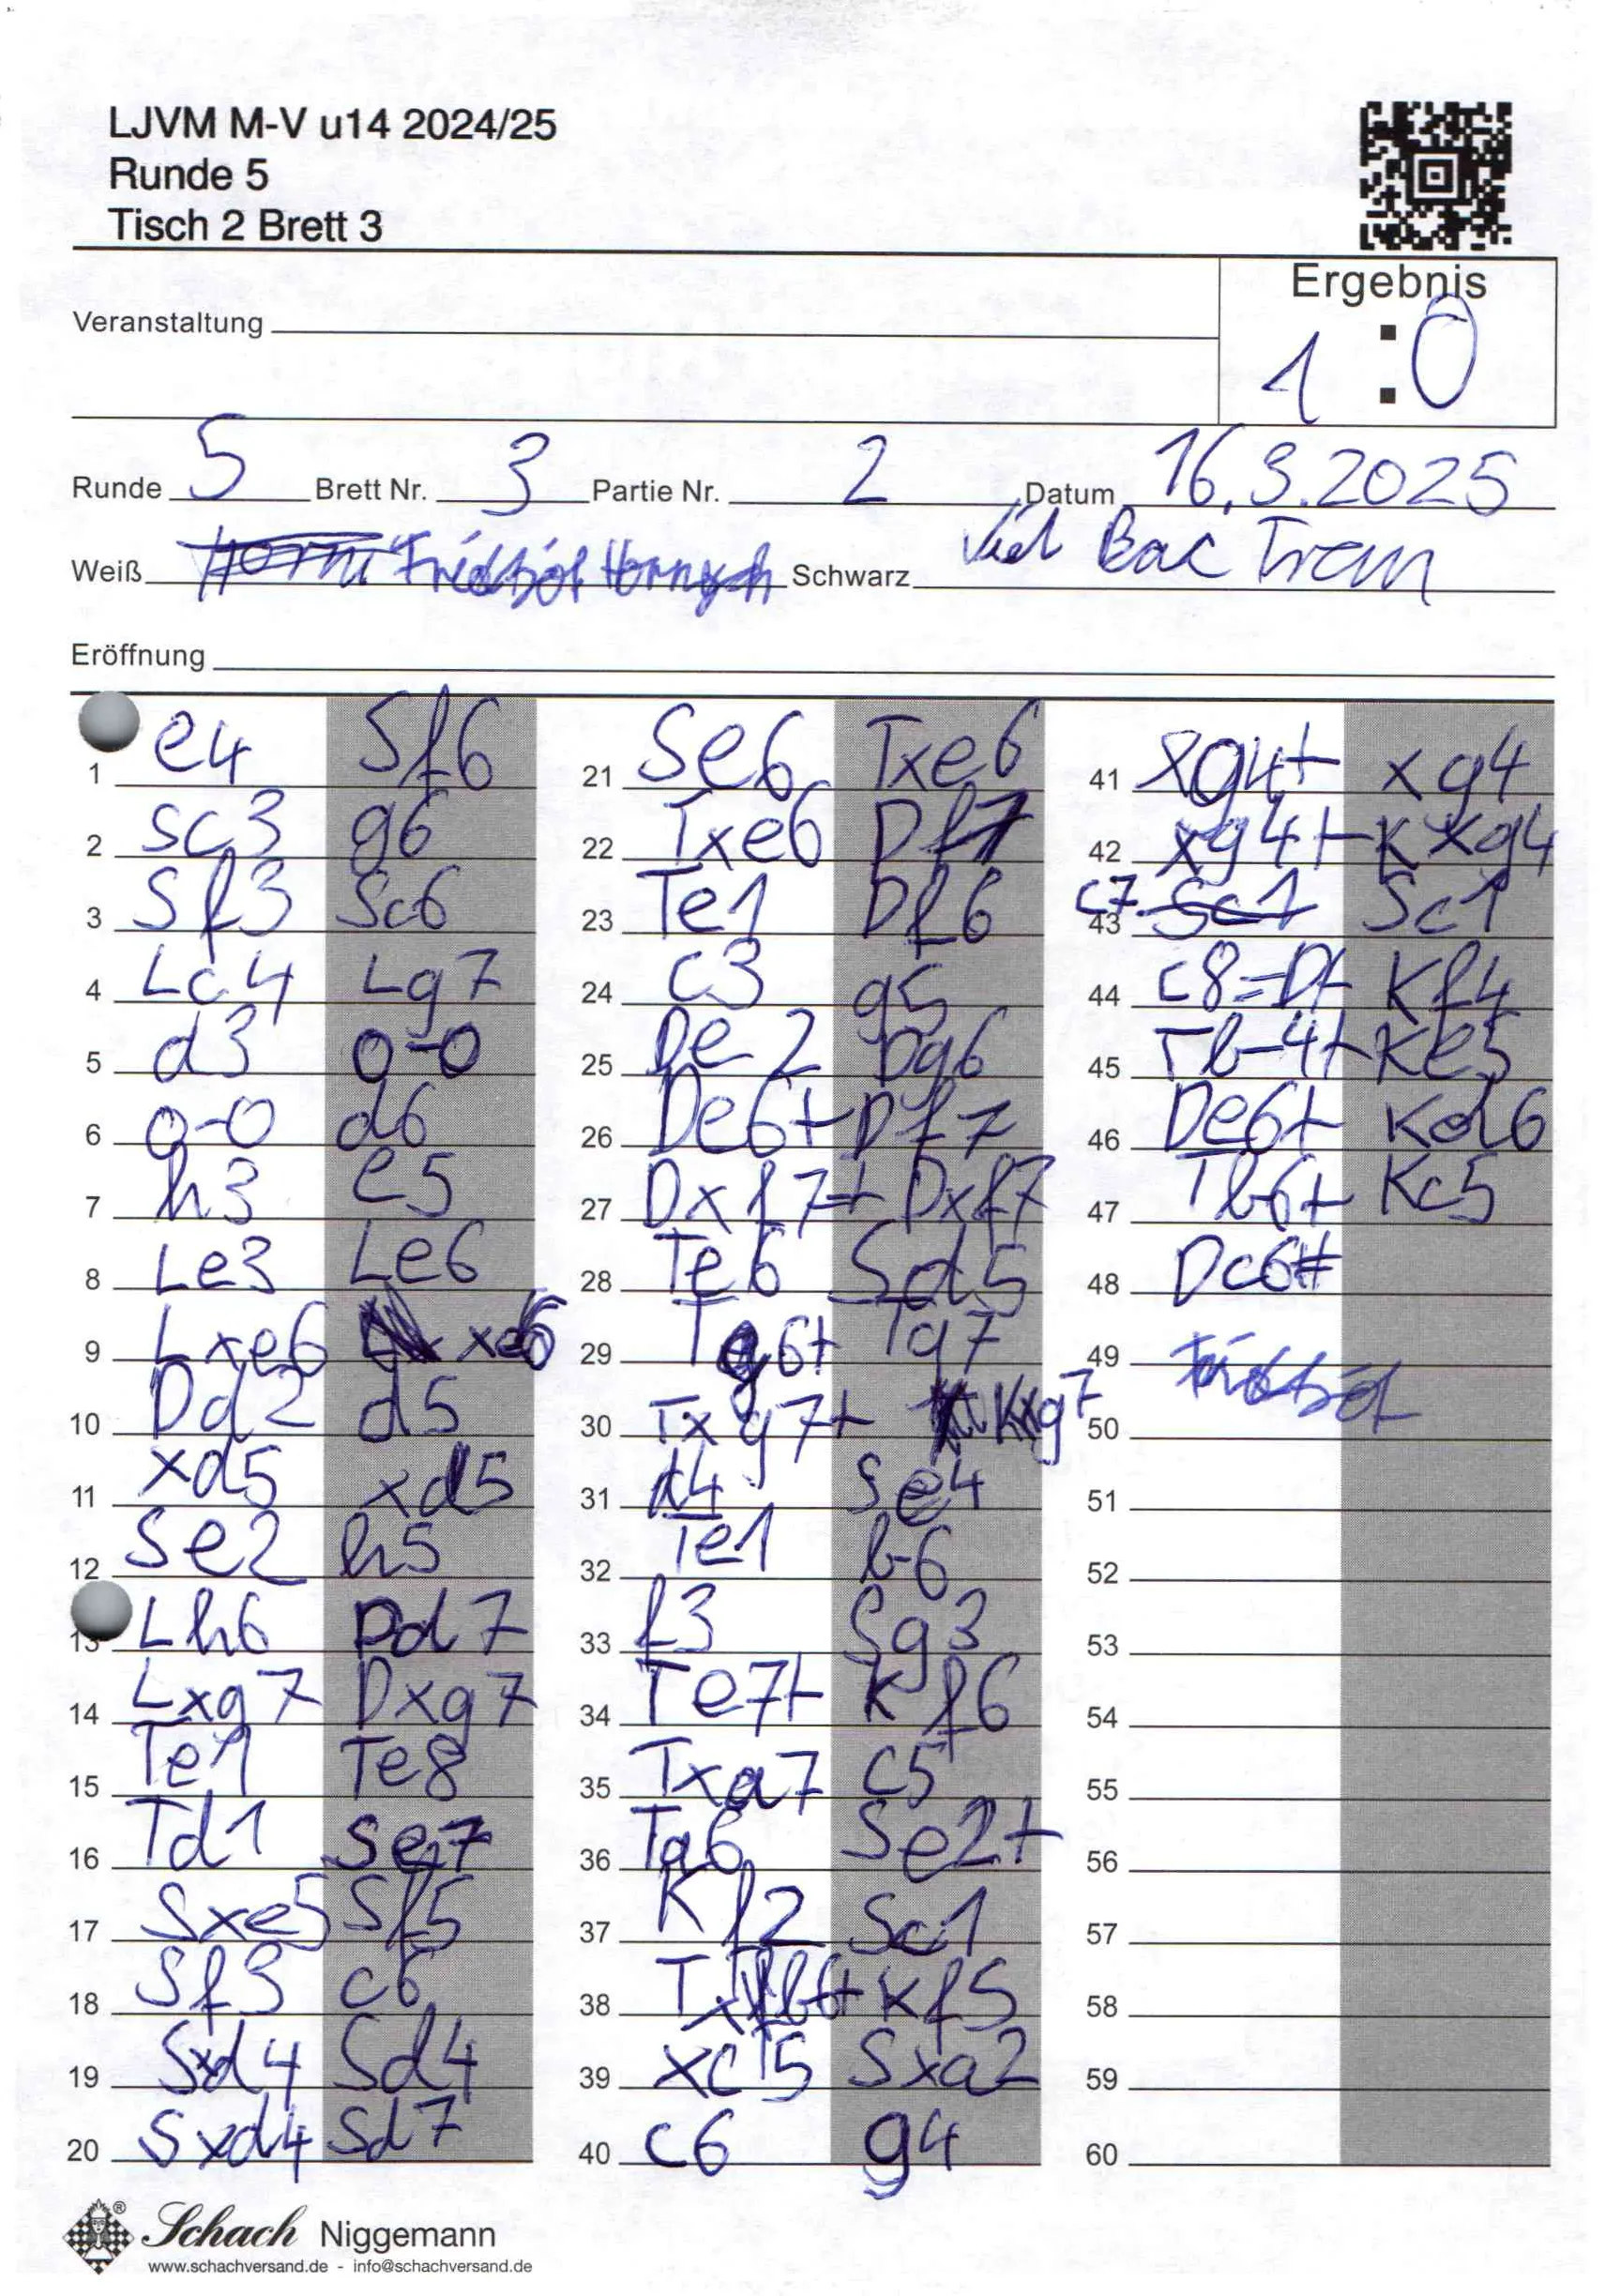 LJVM M-V u14 2024/25
Runde 5
Tisch 2 Brett 3
Ergebnis
1 : 0
Veranstaltung
Runde 5 Brett Nr. 3 Partie Nr. 2 Datum 16.3.2025
Weiß Schwarz Bac
Eröffnung
1 e4 Sf6
2 Sc3 g6
3 Sf3 Sc6
4 Lc4 Lg7
5 d3 0-0
6 0-0 d6
7 h3 e5
8 Le3 Le6
9 Lxe6 xe6
10 Dd2 d5
11 xd5 xd5
12 Se2 h5
13 Lh6 Dd7
14 Lxg7 Dxg7
15 Te1 Te8
16 Td1 Se7
17 Sxe5 Sf5
18 Sf3 c6
19 Sxd4 Sd4
20 Sxd4 Sd7
21 Se6 Txe6
22 Txe6 Df7
23 Te1 Df6
24 c3 g5
25 De2 Dg6
26 De6+ Df7
27 Dxf7+ Dxf7
28 Te6 Sd5
29 Tg6+ Tg7
30 Txg7+ Kxg7
31 d4 Se4
32 Te1 b6
33 f3 Sg3
34 Te7+ Kf6
35 Txa7 c5
36 Ta6 Se2+
37 Kf2 Sc1
38 Txb6+ Kf5
39 xc5 Sxa2
40 c6 g4
41 xg4+ xg4
42 xg4+ Kxg4
43 c7 Sc1
44 c8=D+ Kf4
45 Tb4+ Ke5
46 De6+ Kd6
47 Tb6+ Kc5
48 Dc6#
49
50
51
52
53
54
55
56
57
58
59
60
Schach Niggemann
www.schachversand.de - info@schachversand.de